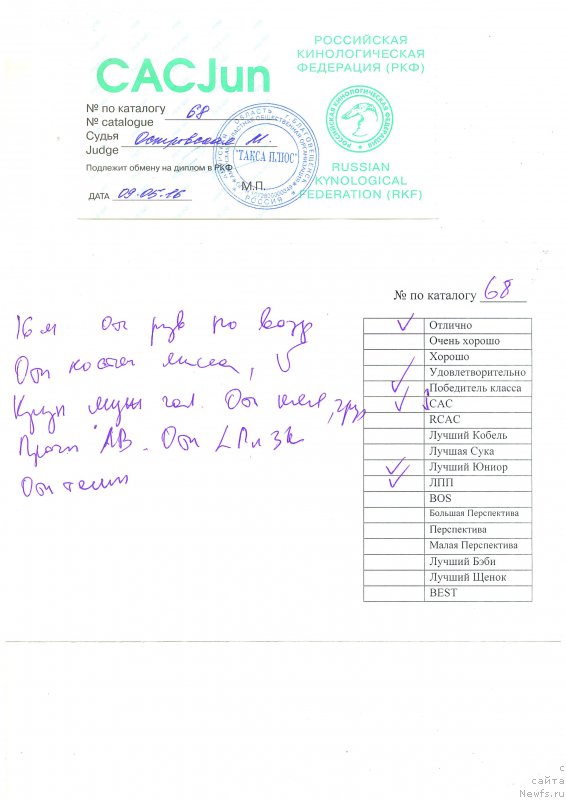 CACJun
РОССИЙСКАЯ
КИНОЛОГИЧЕСКАЯ
ФЕДЕРАЦИЯ (РКФ)
№ по каталогу 68
№ catalogue
Судья Островская М.
Judge
Подлежит обмену на диплом в РКФ
М.П.
ДАТА 09.05.16
"ТАКСА ПЛЮС"
РОССИЯ
РОССИЙСКАЯ КИНОЛОГИЧЕСКАЯ ФЕДЕРАЦИЯ
RUSSIAN
KYNOLOGICAL
FEDERATION (RKF)
№ по каталогу 68
16 м Отл разв по возр
Отл костяк
Круп муж гол. Отл шея, груд
Прочн Отл
Отл темп
Отлично
Очень хорошо
Хорошо
Удовлетворительно
Победитель класса
CAC
RCAC
Лучший Кобель
Лучшая Сука
Лучший Юниор
ЛПП
BOS
Большая Перспектива
Перспектива
Малая Перспектива
Лучший Бэби
Лучший Щенок
BEST
с
сайта
Newfs.ru